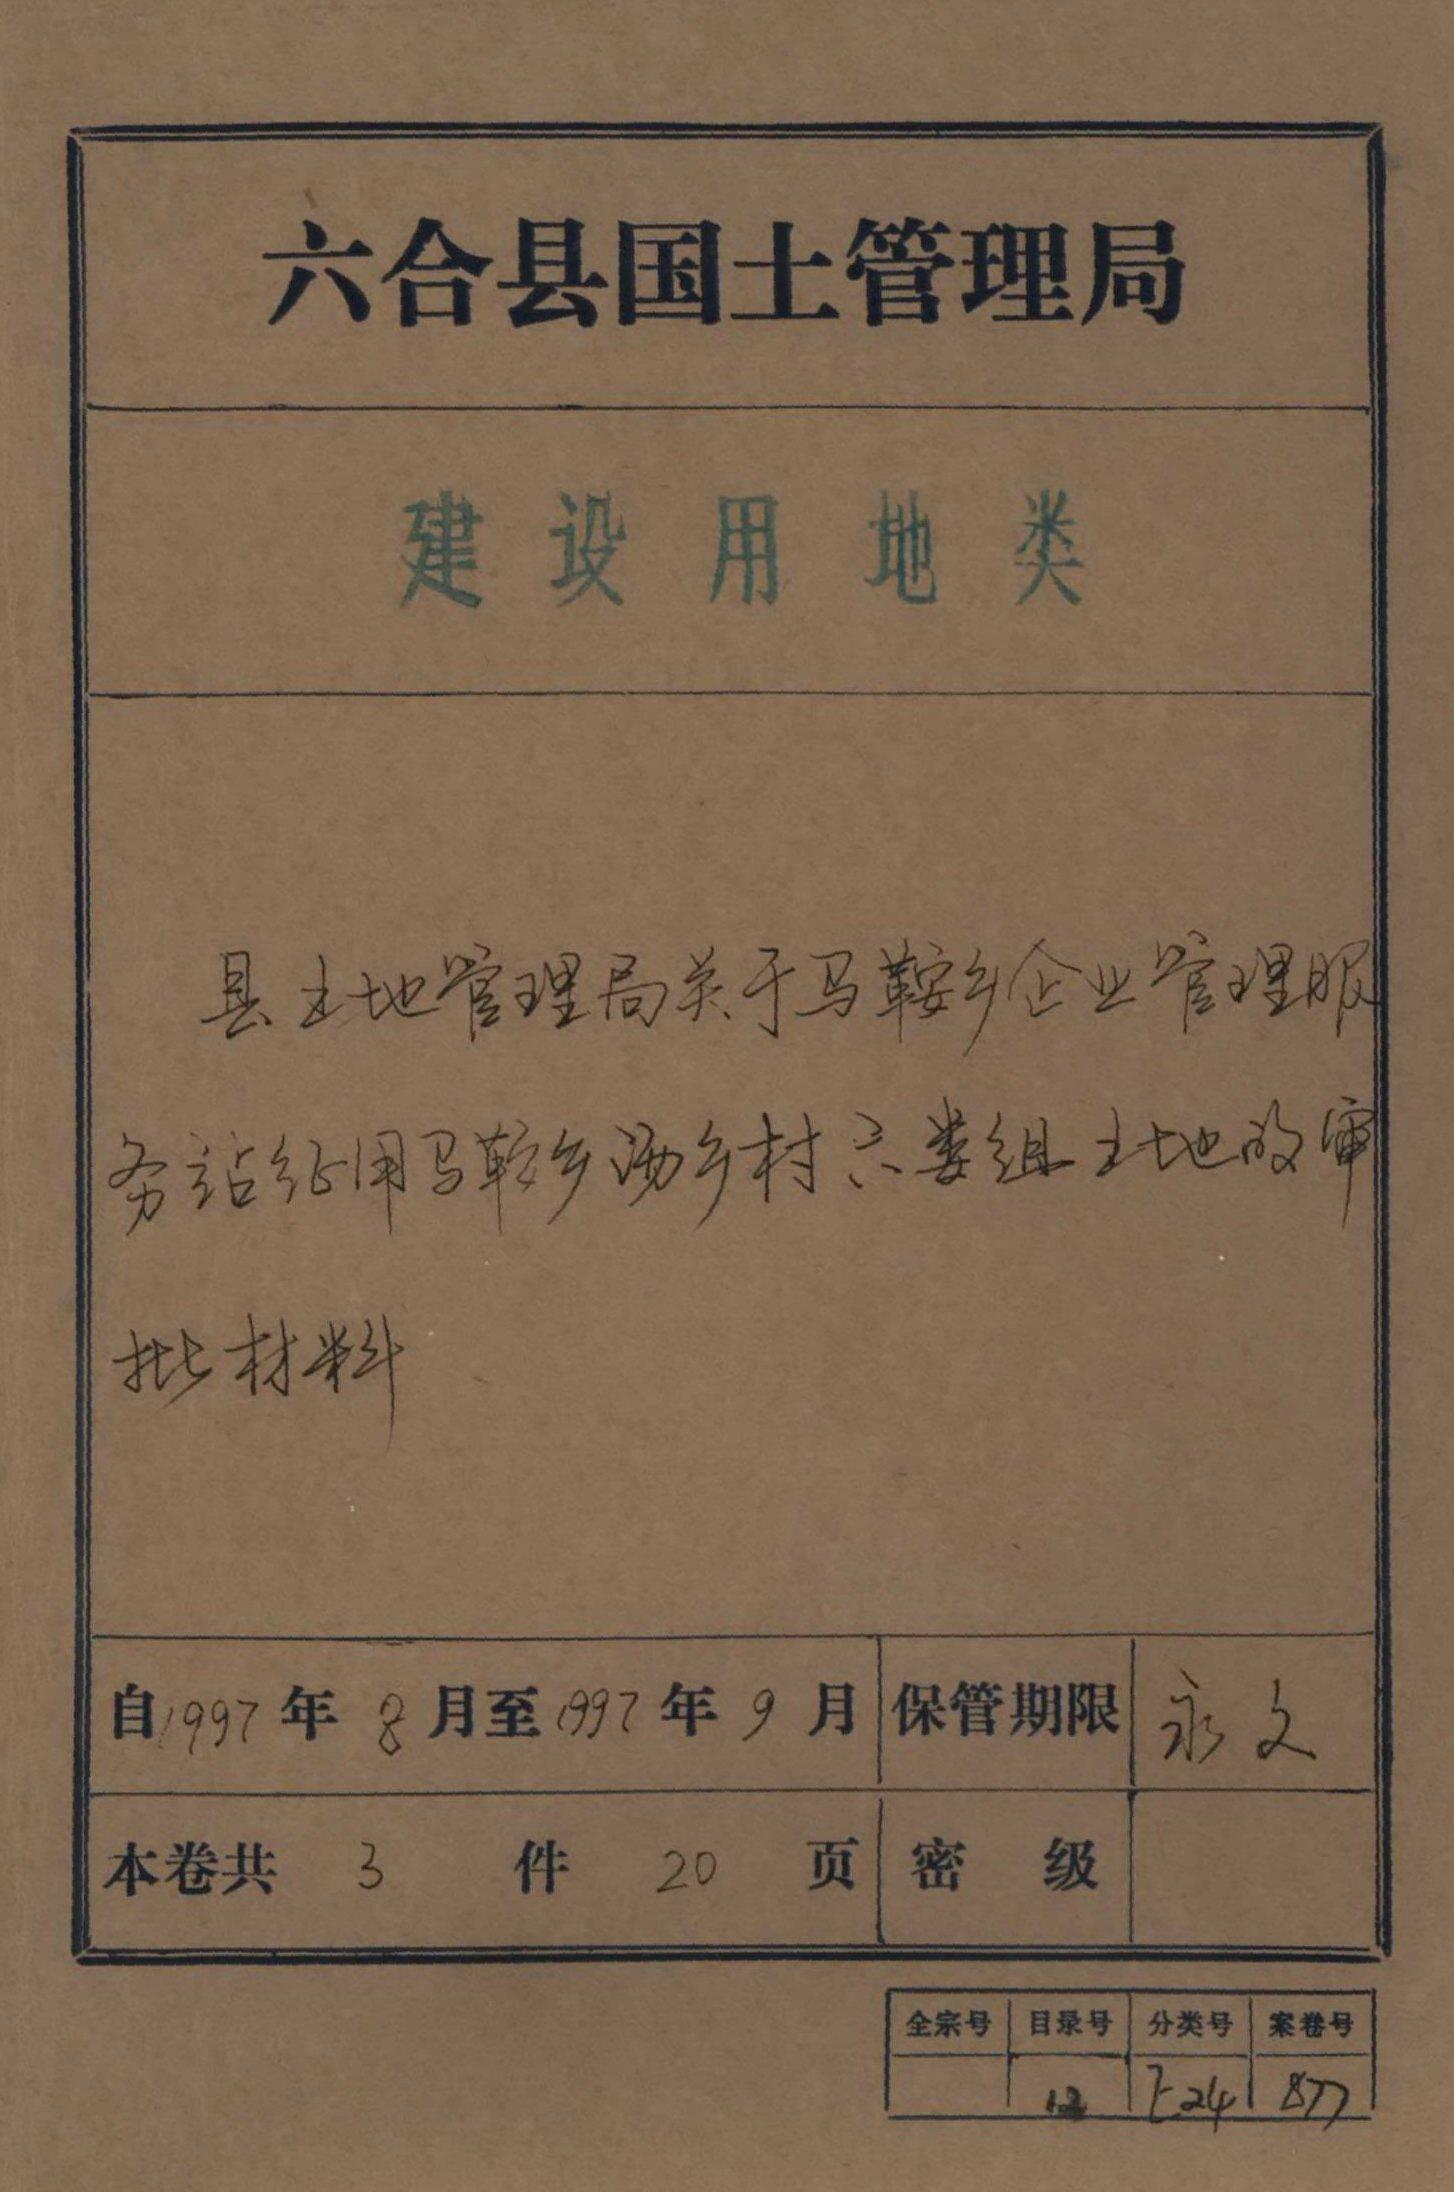 六合县国土管理局
建设用地类
县土地管理局关于马鞍乡企业管理服
务站征用马鞍乡泐乡村六娄组土地的审
批材料
自1997年8月至1997年9月 保管期限 永久
本卷共 3 件 20 页 密级
全宗号 目录号 分类号 案卷号
12 E24 877